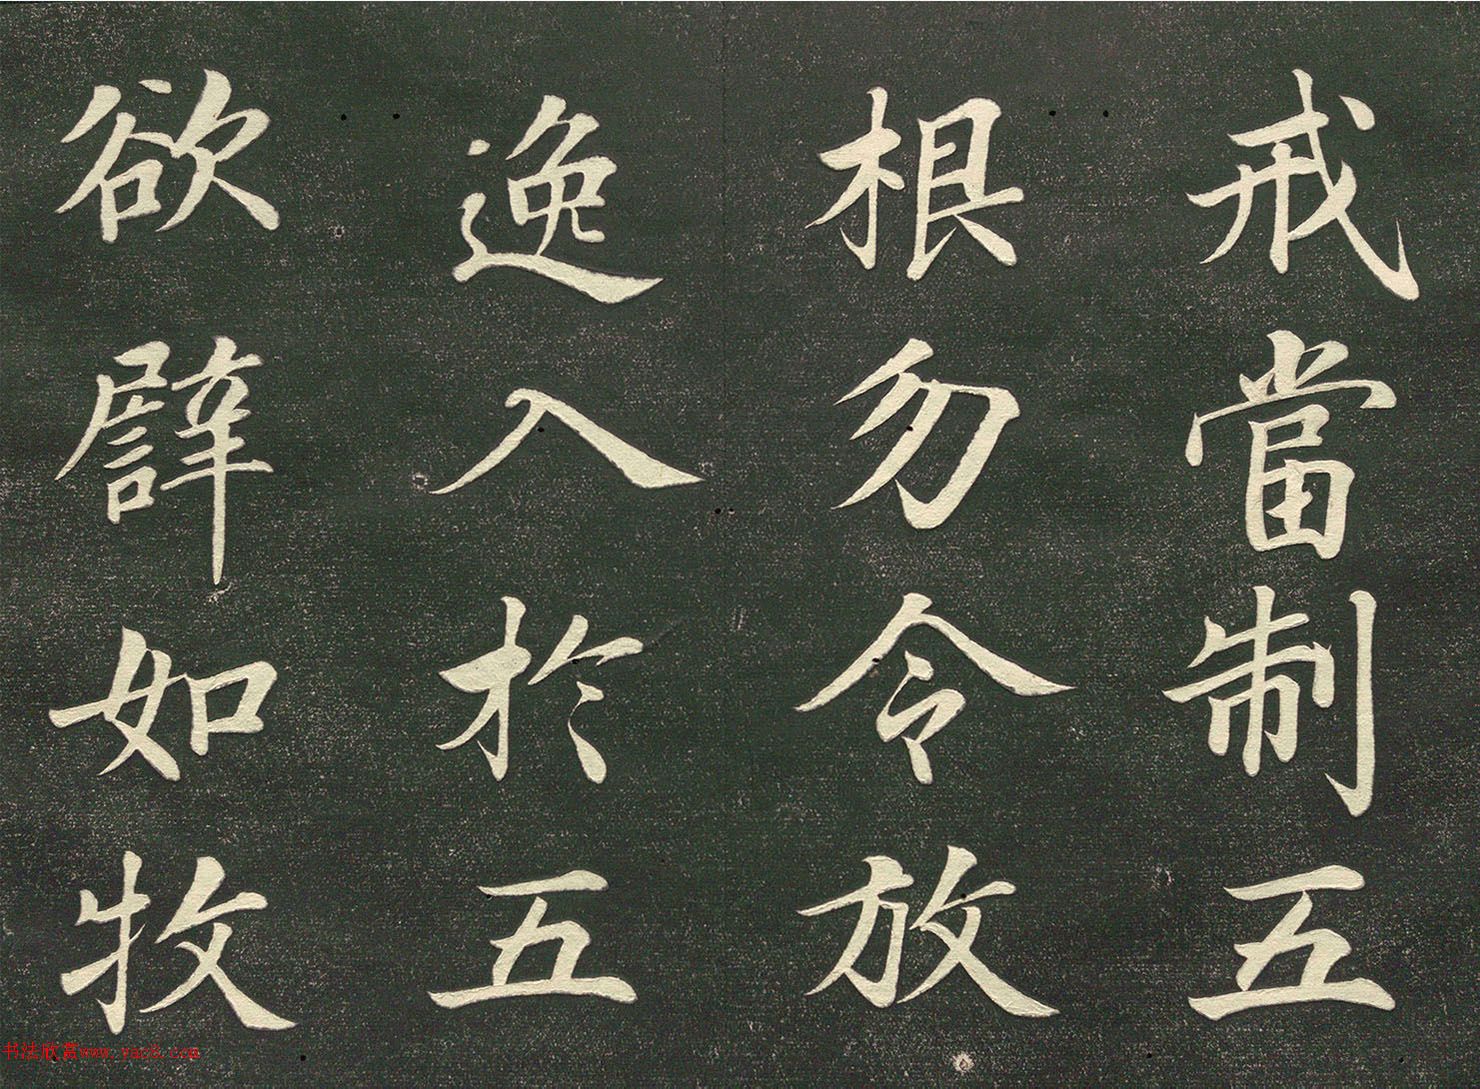 戒當制五
根勿令放
逸入於五
欲譬如牧
书法欣赏www.yac8.com